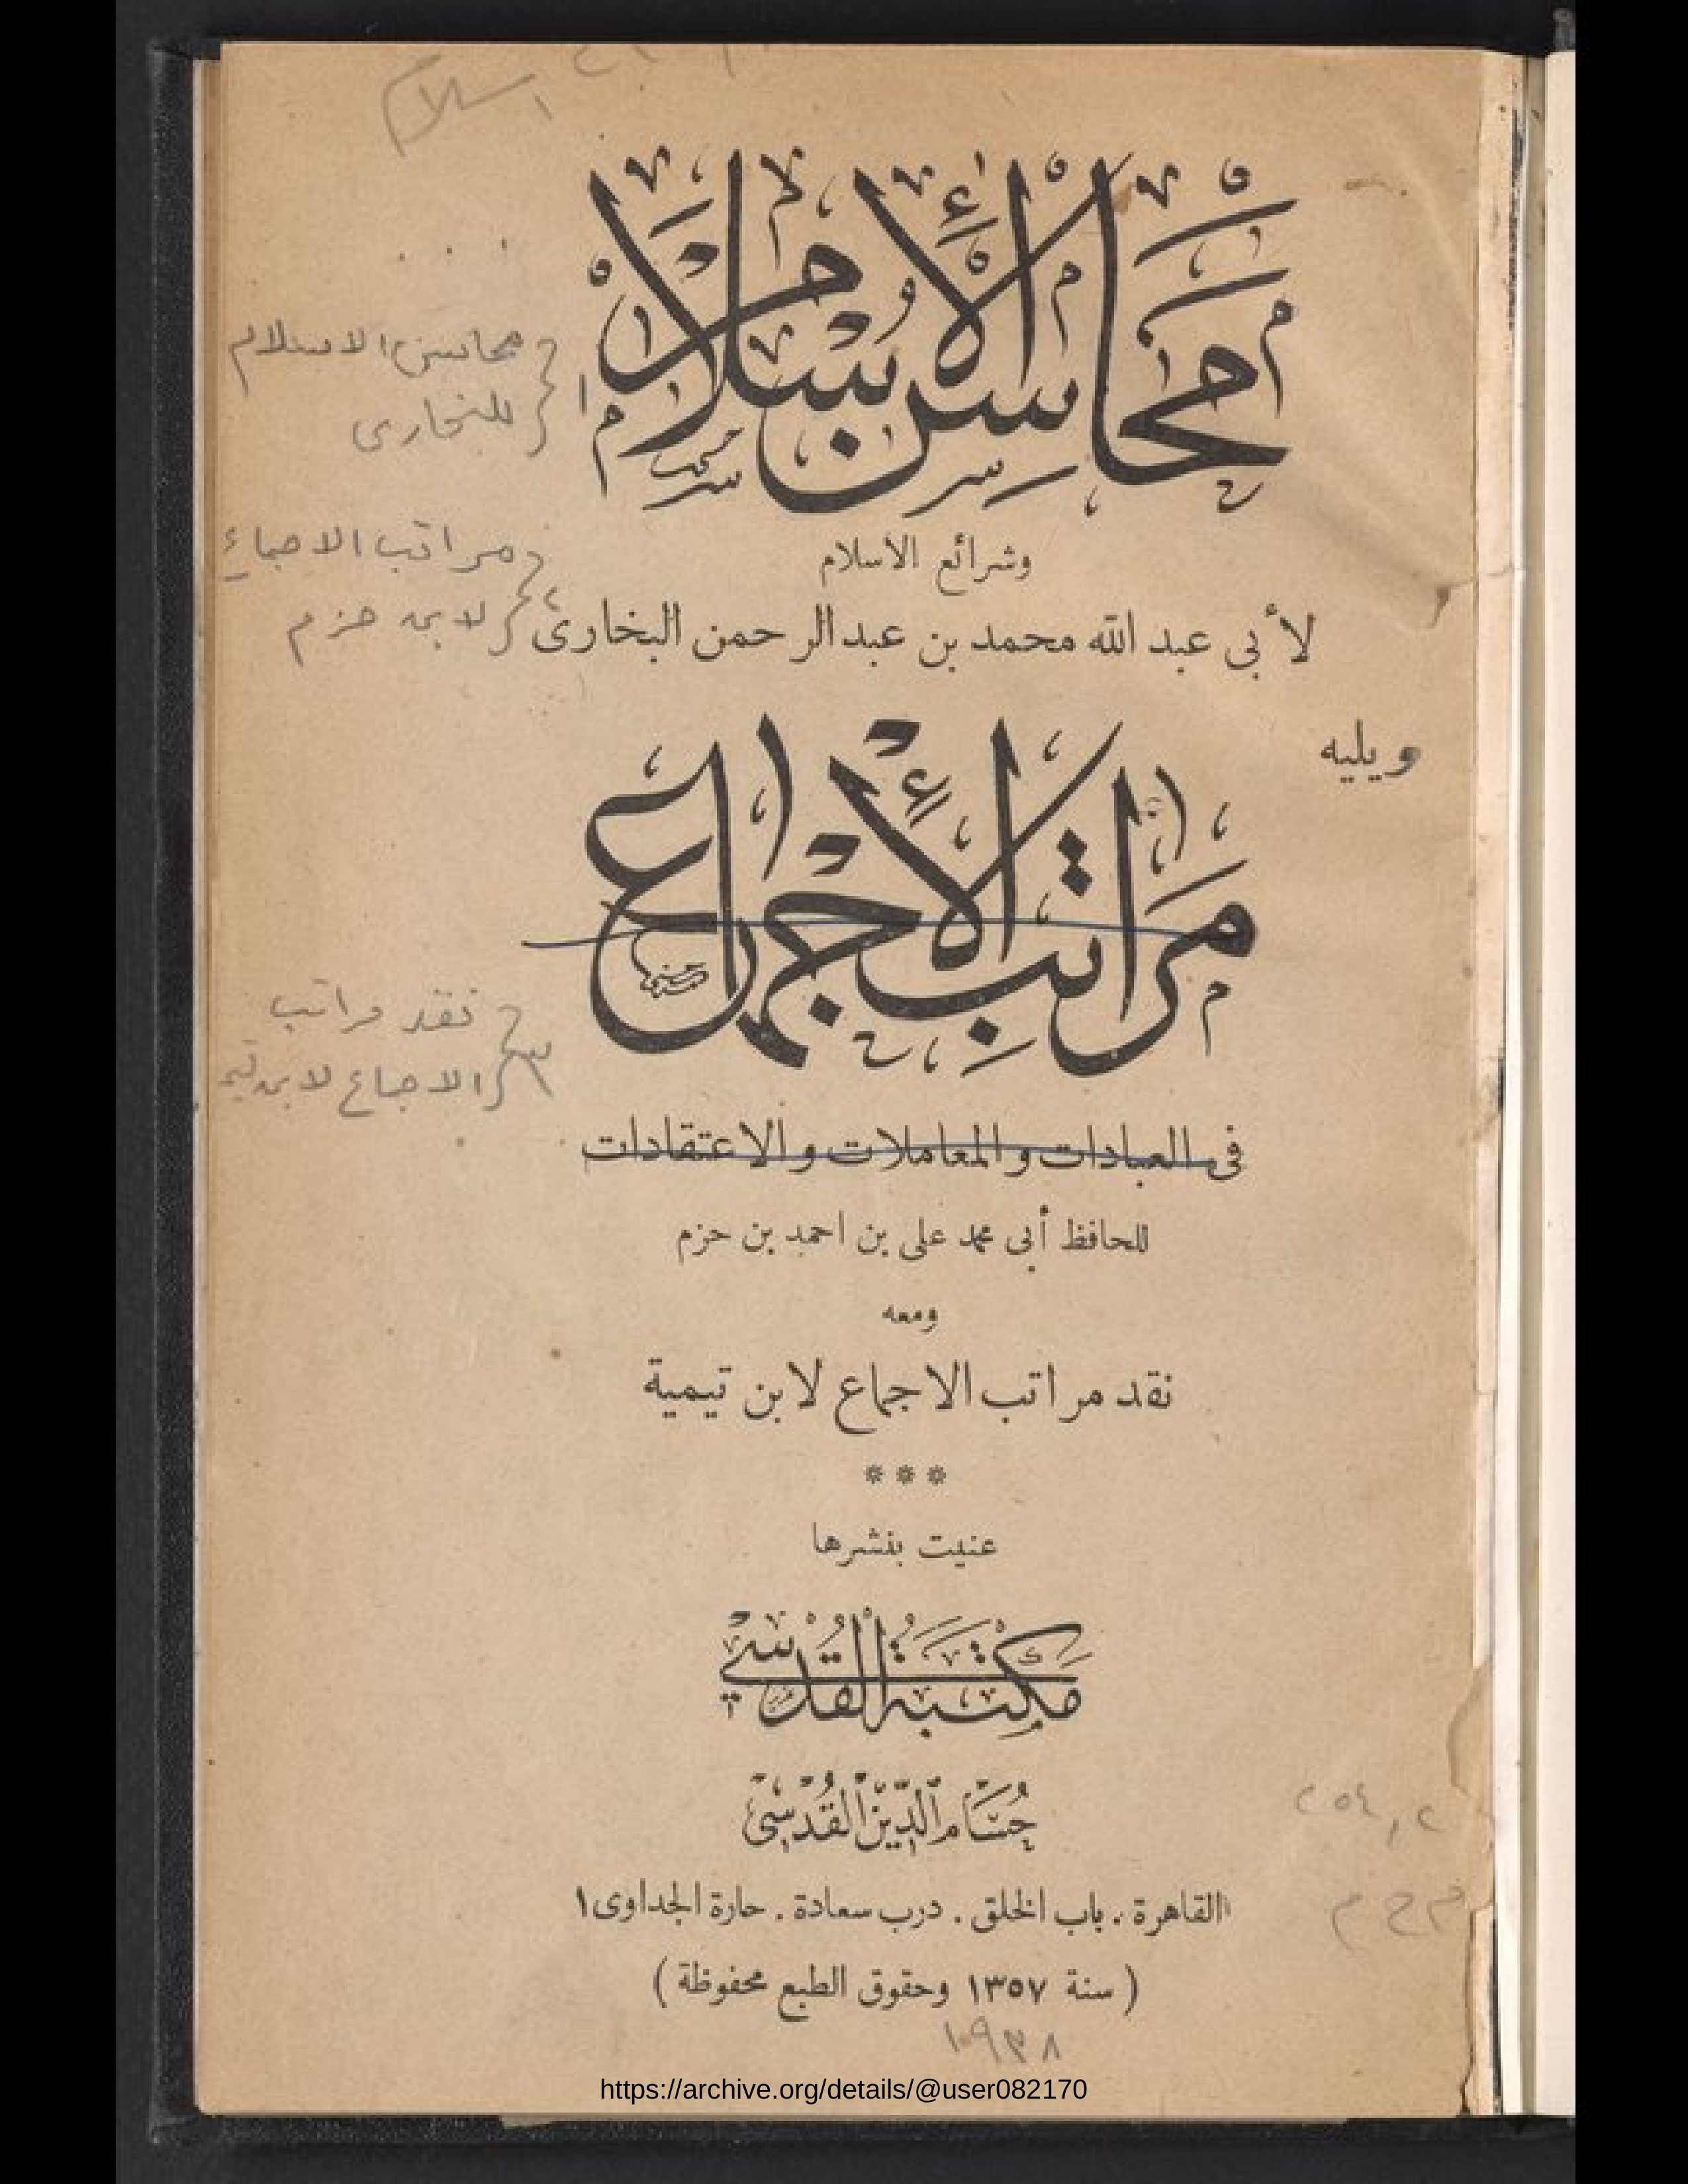 اسلام
محاسن الإسلام
محاسن الاسلام
للبخارى
وشرائع الاسلام
مراتب الاجماع
لابن حزم
لأبى عبد الله محمد بن عبد الرحمن البخارى
ويليه
مراتب الإجماع
نقد مراتب
الاجماع لابن تيمية
فى العبادات والمعاملات والاعتقادات
للحافظ أبى محمد على بن احمد بن حزم
ومعه
نقد مراتب الاجماع لابن تيمية
***
عنيت بنشرها
مكتبة القدسي
حسام الدين القدسي
القاهرة . باب الخلق . درب سعادة . حارة الجداوى ١
( سنة ١٣٥٧ وحقوق الطبع محفوظة )
١٩٣٨
https://archive.org/details/@user082170